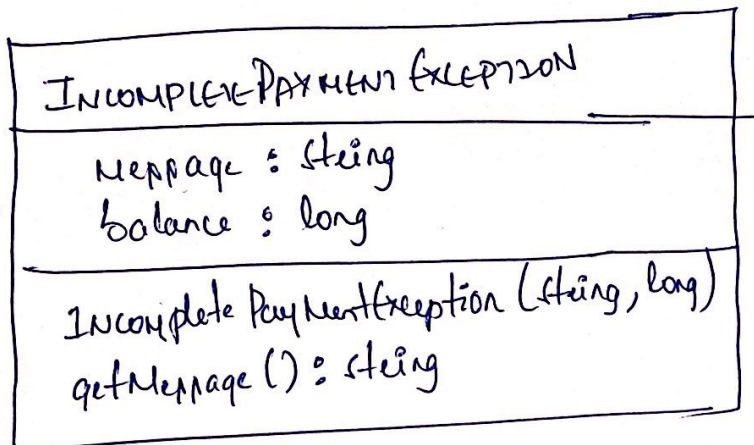 INCOMPLETEPAYMENT EXCEPTION
Message : string
balance : long
INComplete PaymentException (string, long)
getMessage () : string